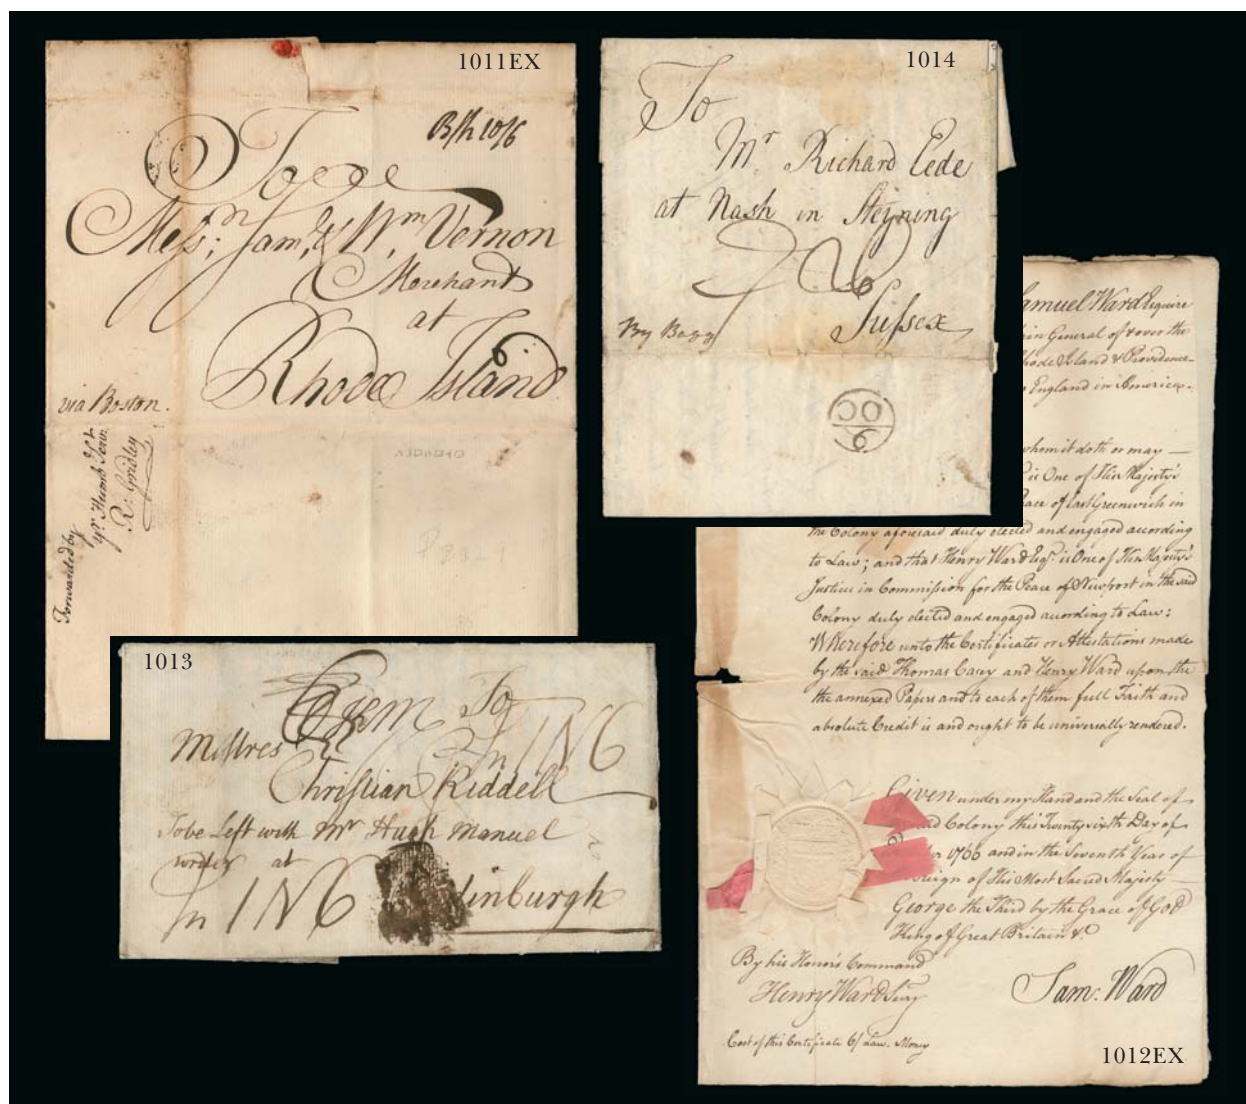 1011EX
To
Mess; Sam, & Wm, Vernon
Merchants
at
Rhode Island
via Boston.
Forwarded by
yr. Humb Serv.
R: Gridley
1014
To
Mr Richard Eede
at Nash in Steyning
Sussex
By Bagg
1013
To
Christian Riddell
To be Left with Mr Hugh Manuel
at
Edinburgh
Samuel Ward Esquire
in General of & over the
Rhode Island & Providence
England in America.
whom it doth or may
is One of His Majesty's
Peace of East Greenwich in
the Colony aforesaid duly elected and engaged according
to Law; and that Henry Ward Esqr. is One of His Majesty's
Justices in Commission for the Peace of Newport in the said
Colony duly elected and engaged according to Law:
Wherefore unto the Certificates or Attestations made
by the said Thomas Casey and Henry Ward upon the
the annexed Papers and to each of them full Faith and
absolute Credit is and ought to be universally rendered.
Given under my Hand and the Seal of
said Colony this Twenty sixth Day of
1766 and in the Seventh Year of
Reign of His Most Sacred Majesty
George the Third by the Grace of God
King of Great Britain &c
By his Honor's Command
Henry Ward Secry
Sam: Ward
Cost of this Certificate 6/ Law. Money
1012EX